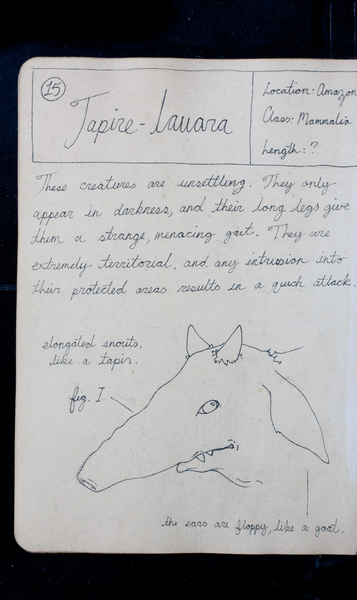 15
Tapire-Iauara
Location: Amazon
Class: Mammalia
Length: ?
These creatures are unsettling. They only
appear in darkness, and their long legs give
them a strange, menacing gait. They are
extremely territorial, and any intrusion into
their protected areas results in a quick attack.
elongated snouts,
like a tapir.
fig. I
the ears are floppy, like a goat.